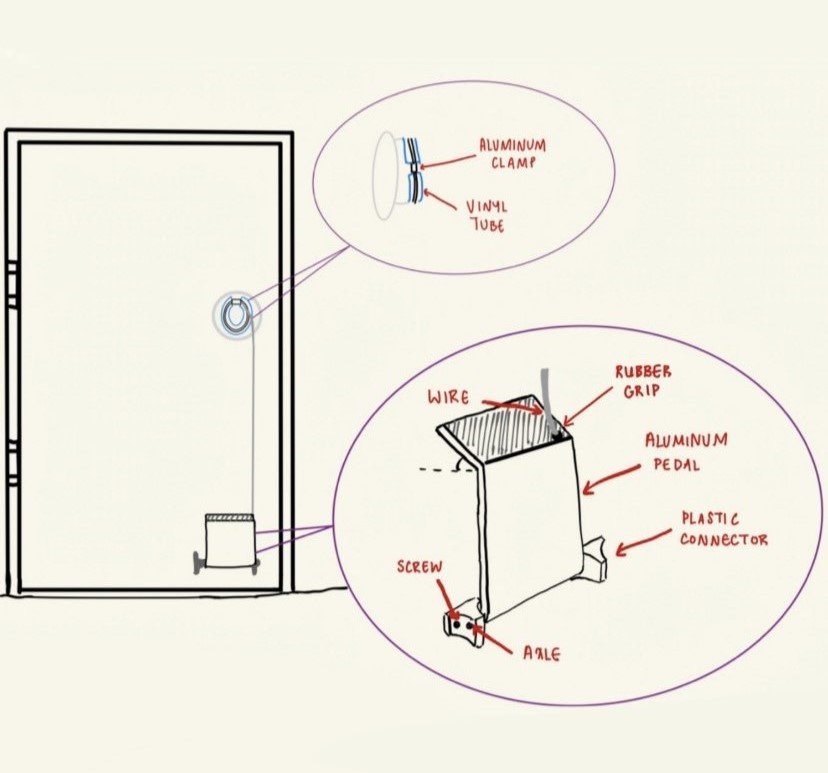 ALUMINUM
CLAMP
VINYL
TUBE
RUBBER
GRIP
WIRE
ALUMINUM
PEDAL
PLASTIC
CONNECTOR
SCREW
AXLE